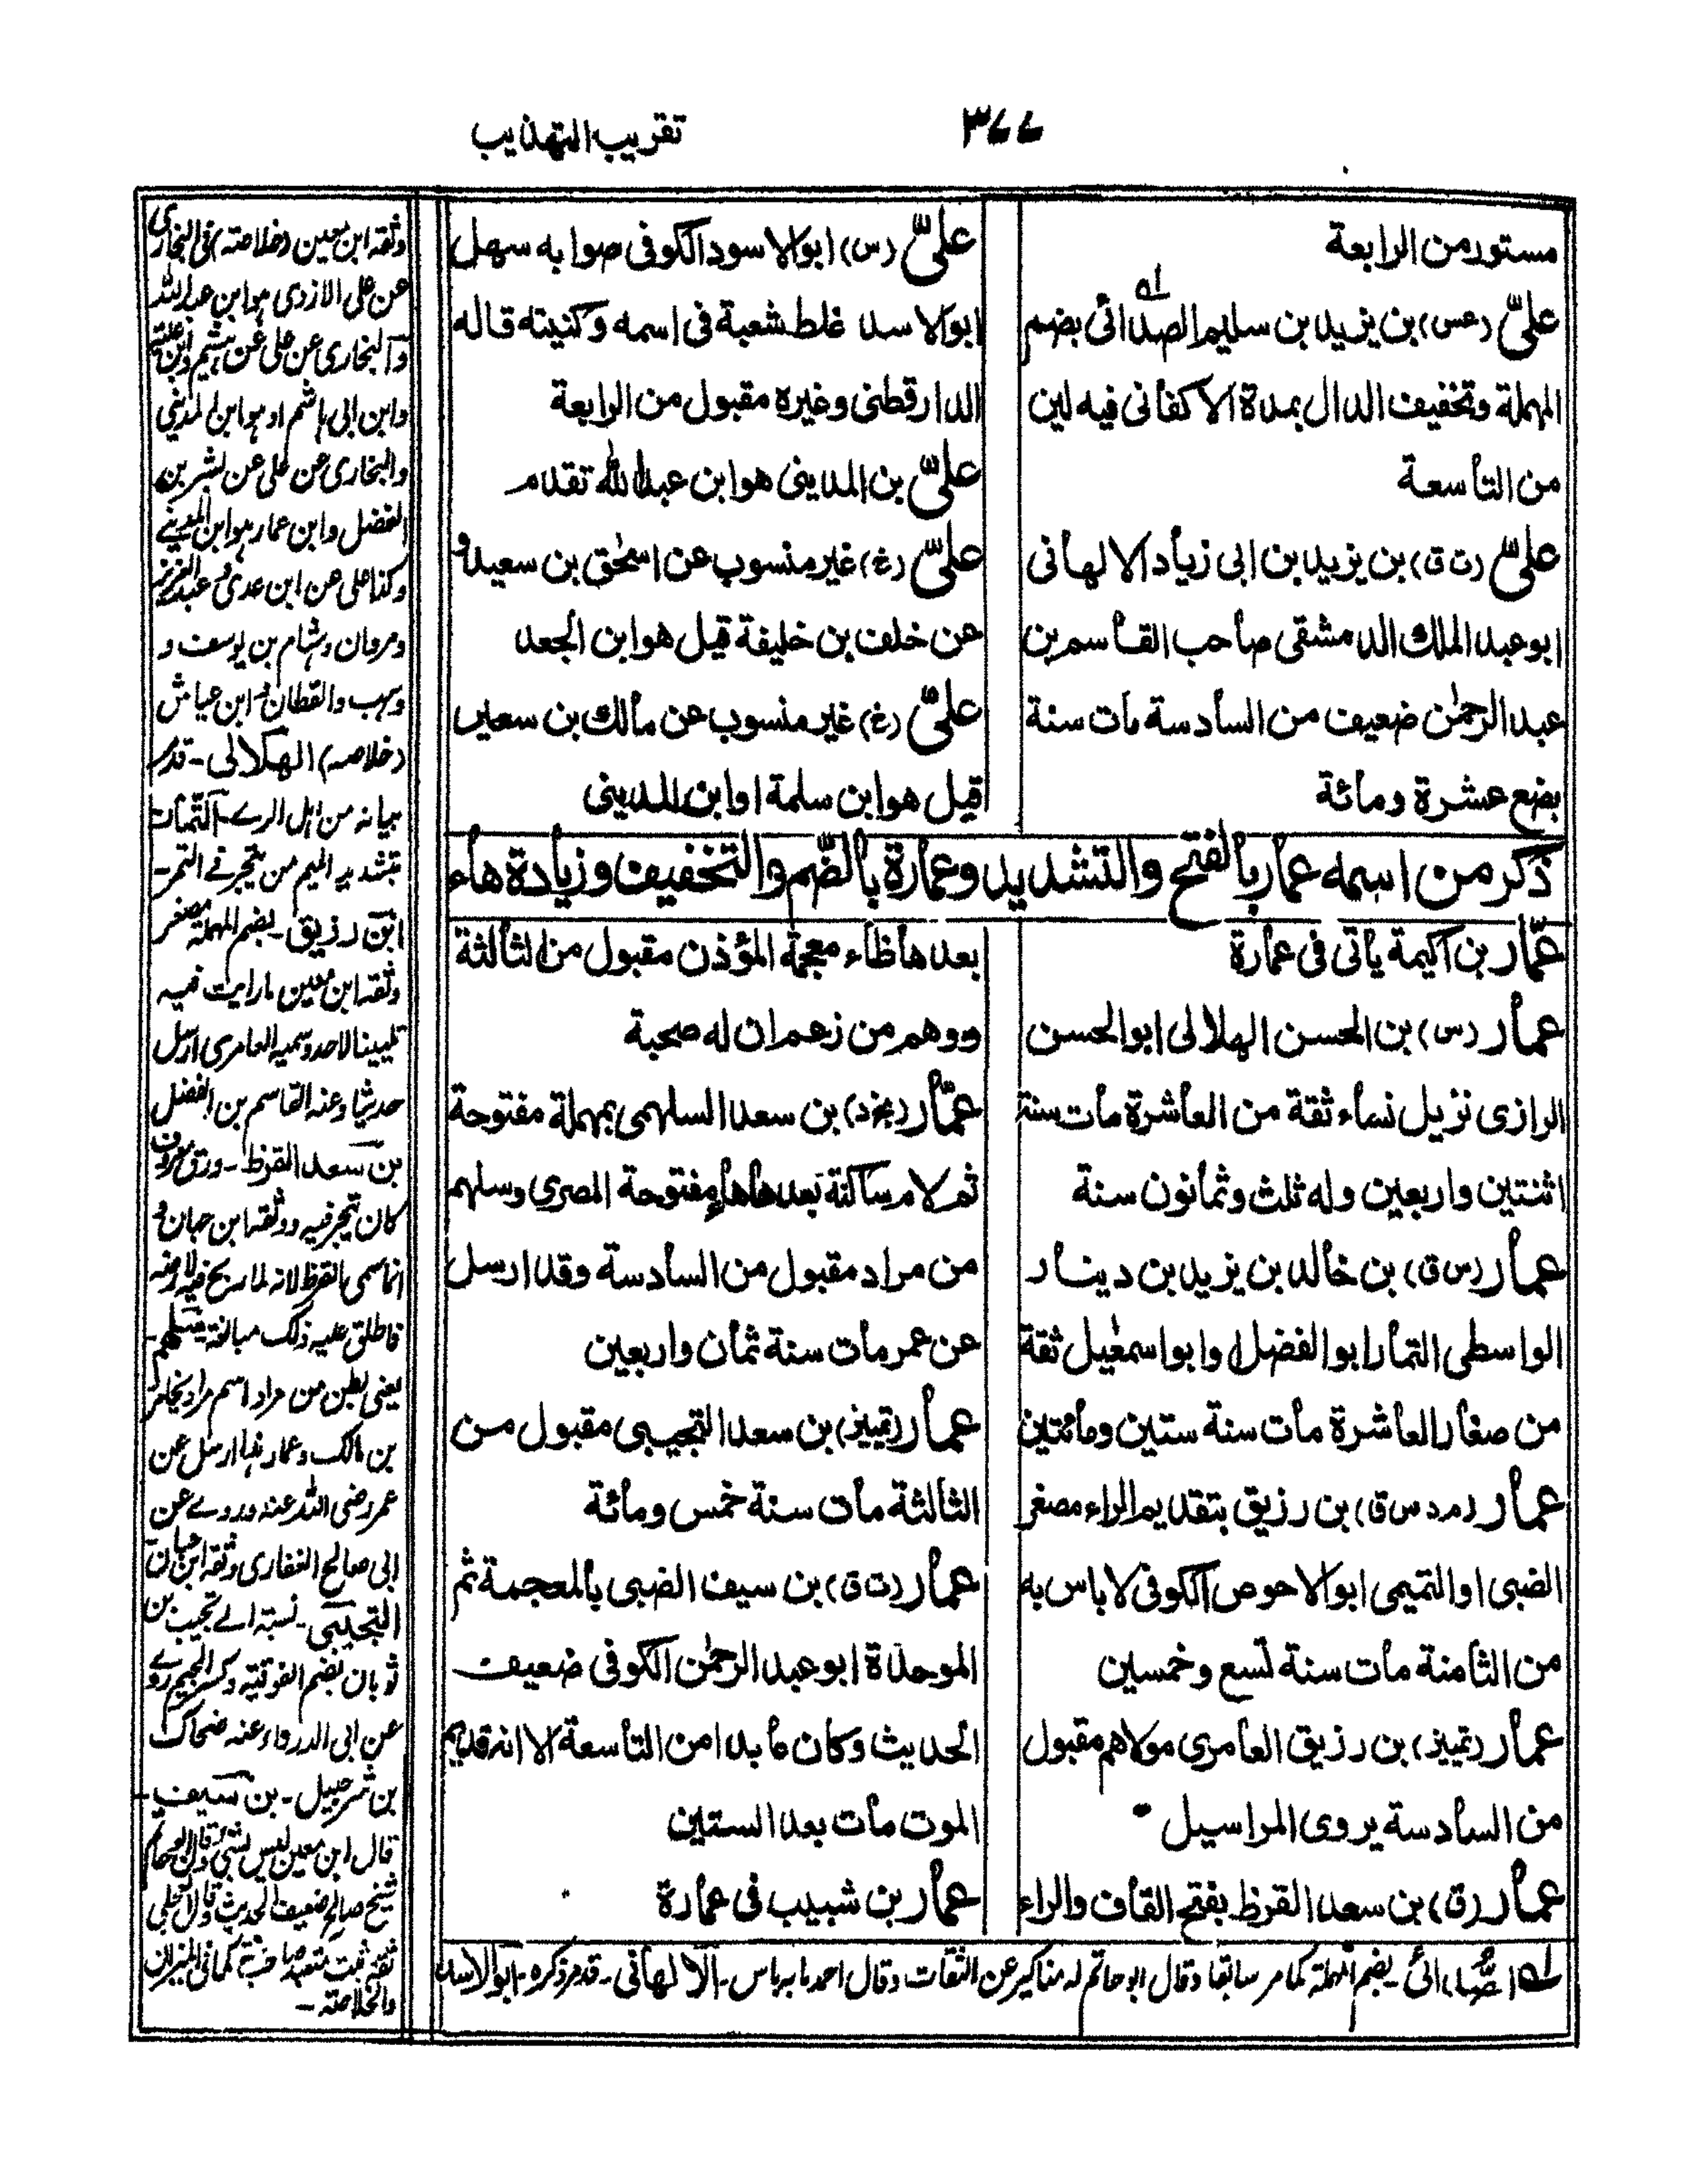 ٣٧٧
تقريب التهذيب
مستور من الرابعة
علىّ (عس) بن يزيد بن سليم الصدائى بضم
المهملة وتخفيف الدال بمدة الاكفانى فيه لين
من التاسعة
علىّ (ت ق) بن يزيد بن ابى زياد الالهانى
ابو عبد الملك الدمشقى صاحب القاسم بن
عبد الرحمٰن ضعيف من السادسة مات سنة
بضع عشرة ومائة
علىّ (س) ابو الاسود الكوفى صوابه سهل
ابو الاسد غلط شعبة فى اسمه وكنيته قاله
الدارقطنى وغيره مقبول من الرابعة
علىّ بن المدينى هو ابن عبد الله تقدم
علىّ (خ) غير منسوب عن اسحٰق بن سعيد و
عن خلف بن خليفة قيل هو ابن الجعد
علىّ (خ) غير منسوب عن مالك بن سعير
قيل هو ابن سلمة او ابن المدينى
ذكر من اسمه عمار بالفتح والتشديد وعمارة بالضم والتخفيف وزيادة هاء
عمّار بن اكيمة ياتى فى عمارة
عمار (س) بن الحسن الهلالى ابو الحسن
الرازى نزيل نساء ثقة من العاشرة مات سنة
اثنتين واربعين وله ثلث وثمانون سنة
عمار (س ق) بن خالد بن يزيد بن دينار
الواسطى التمار ابو الفضل او ابو اسمٰعيل ثقة
من صغار العاشرة مات سنة ستين ومائتين
عمار (م د س ق) بن رزيق بتقديم الراء مصغر
الضبى او التميمى ابو الاحوص الكوفى لا باس به
من الثامنة مات سنة تسع وخمسين
عمار (تمييز) بن رزيق العامرى مولاهم مقبول
من السادسة يروى المراسيل
عمار (ق) بن سعد القرظ بفتح القاف والراء
بعدها ظاء معجمة المؤذن مقبول من الثالثة
ووهم من زعم ان له صحبة
عمّار (بخ د) بن سعد السلهمى بمهملة مفتوحة
ثم لام ساكنة بعدها هاء مفتوحة المصرى وسلهم
من مراد مقبول من السادسة وقد ارسل
عن عمر مات سنة ثمان واربعين
عمار (تمييز) بن سعد التجيبى مقبول من
الثالثة مات سنة خمس ومائة
عمار (ت ق) بن سيف الضبى بالمعجمة ثم
الموحدة ابو عبد الرحمٰن الكوفى ضعيف
الحديث وكان عابدا من التاسعة الا انه قديم
الموت مات بعد الستين
عمار بن شبيب فى عمارة
له الصدائى - بضم المهملة كما مر سابقا وقال ابو حاتم له مناكير عن الثقات وقال احمد ما به باس - الالهانى - قد مر ذكره - ابو الاسد
وثقه ابن معين (خلاصته) فى البخارى
عن على الازدى هو ابن عبد الله
والبخارى عن على عن هشيم وابن علية
وابن ابى هاشم او هو ابن المدينى
والبخارى عن على عن بشر بن
المفضل وابن عمار هو ابن المدينى
وكذا على عن ابن عدى و عبد العزيز
ومروان وهشام بن يوسف و
وهب والقطان و ابن عياش
(خلاصه) الهلالى - قد مر
بيانه من اهل الرے - التمار
بتشديد الميم من يتجر فى التمر -
ابن رزيق - بضم المهملة مصغر
وثقه ابن معين ما رايت فيه
تليينا لاحد وسميه العامرى ارسل
حديثا وعنه القاسم بن الفضل
بن سعد القرظ - ورق معروف
كان يتجر فيه ووثقه ابن حبان و
انما سمى القرظ لانه لما ربح فيه لازمه
فاطلق عليه ذلك مبالغة سلهم -
يعنى بطن من مراد اسم مراد يخابر
بن مالك وعمار هذا ارسل عن
عمر رضى الله عنه وروے عن
ابى صالح الغفارى وثقه ابن حبان
التجيبى - نسبة الے تجيب بن
ثوبان بضم الفوقية وكسر الجيم روے
عن ابى الدرداء وعنه ضحاك
بن شرحبيل - بن سيف -
قال ابن معين ليس بشئ وقال ابو حاتم
شيخ صالح ضعيف الحديث وقال العجلى
ثقة ثبت متعبد صاحب سنة كما فى الميزان
والخلاصته -